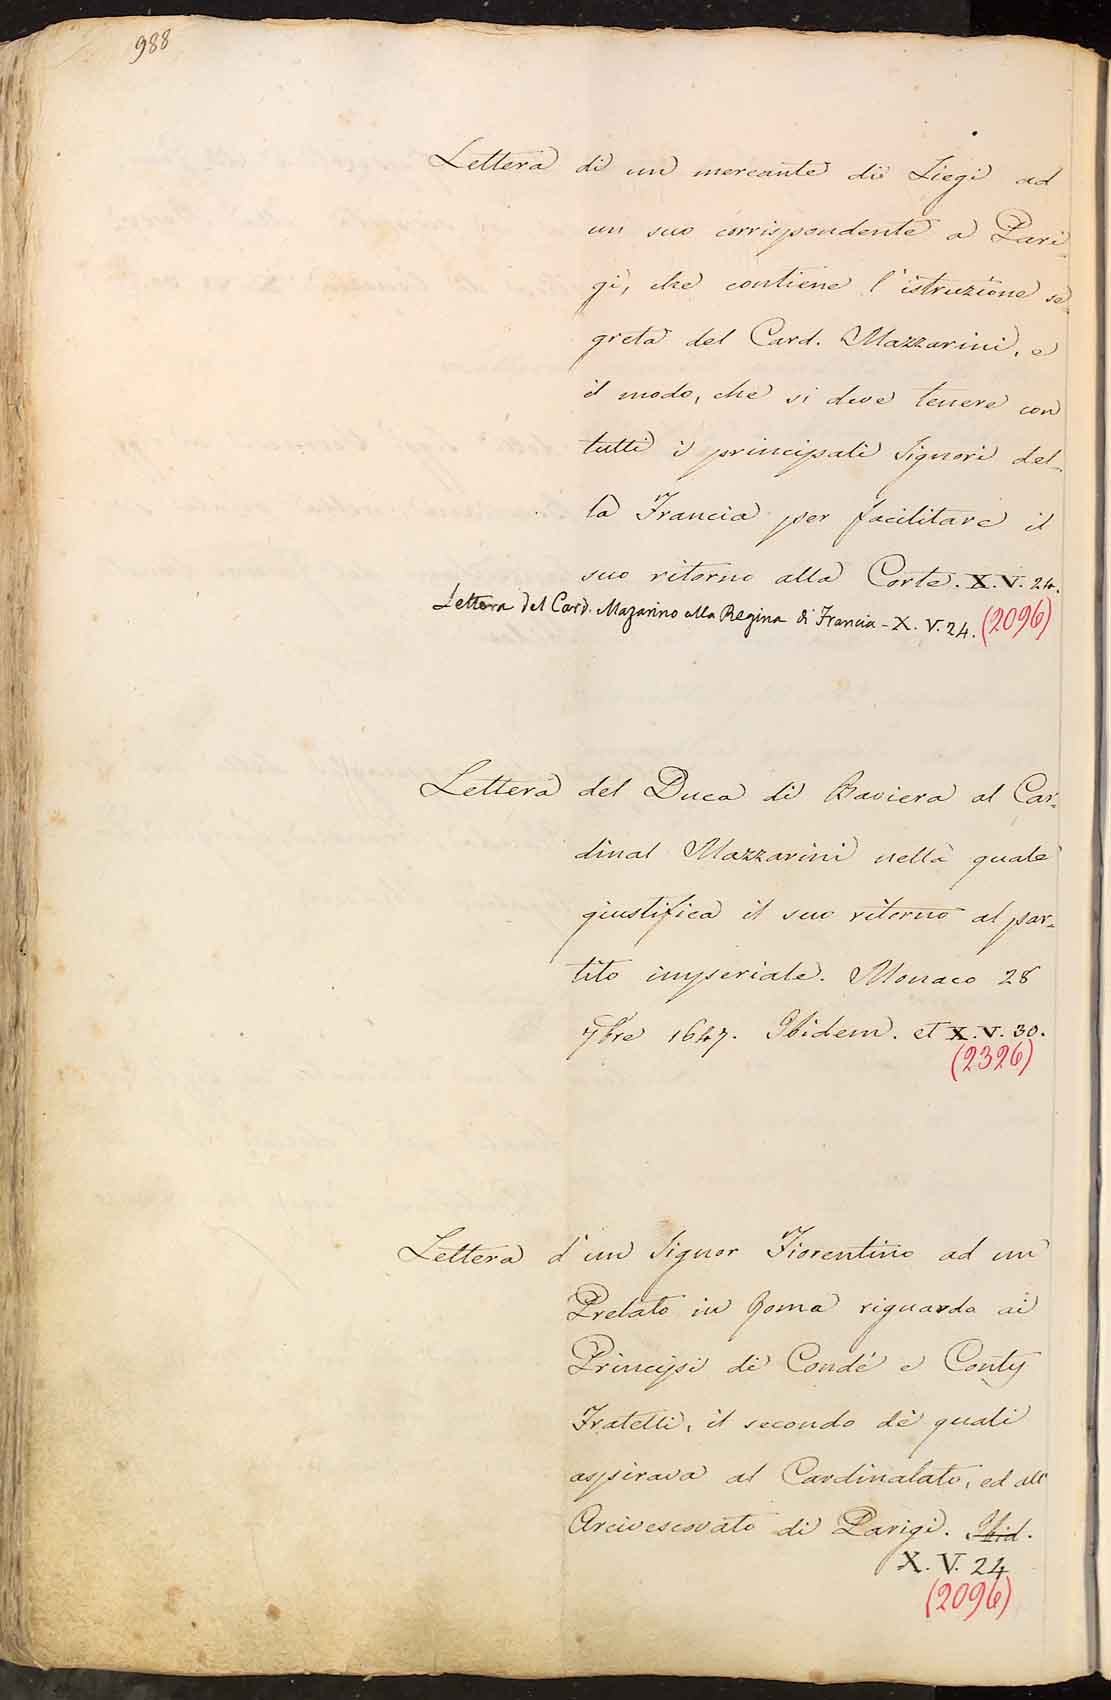 988
Lettera di un mercante di Liegi ad
un suo corrispondente a Pari-
gi, che contiene l'istruzione se-
greta del Card. Mazzarini, e
il modo, che si deve tenere con
tutti i principali Signori del-
la Francia per facilitare il
suo ritorno alla Corte. X.V. 24.
Lettera del Card. Mazarino alla Regina di Francia - X. V. 24. (2096)
Lettera del Duca di Baviera al Car-
dinal Mazzarini nella quale
giustifica il suo ritorno al par-
tito imperiale. Monaco 28
7bre 1647. Ibidem. et X.V. 30.
(2326)
Lettera d'un Signor Fiorentino ad un
Prelato in Roma riguardo ai
Principi di Condé e Conty
Fratelli, il secondo de quali
aspirava al Cardinalato, ed all'
Arcivescovato di Parigi. Ibid.
X. V. 24
(2096)